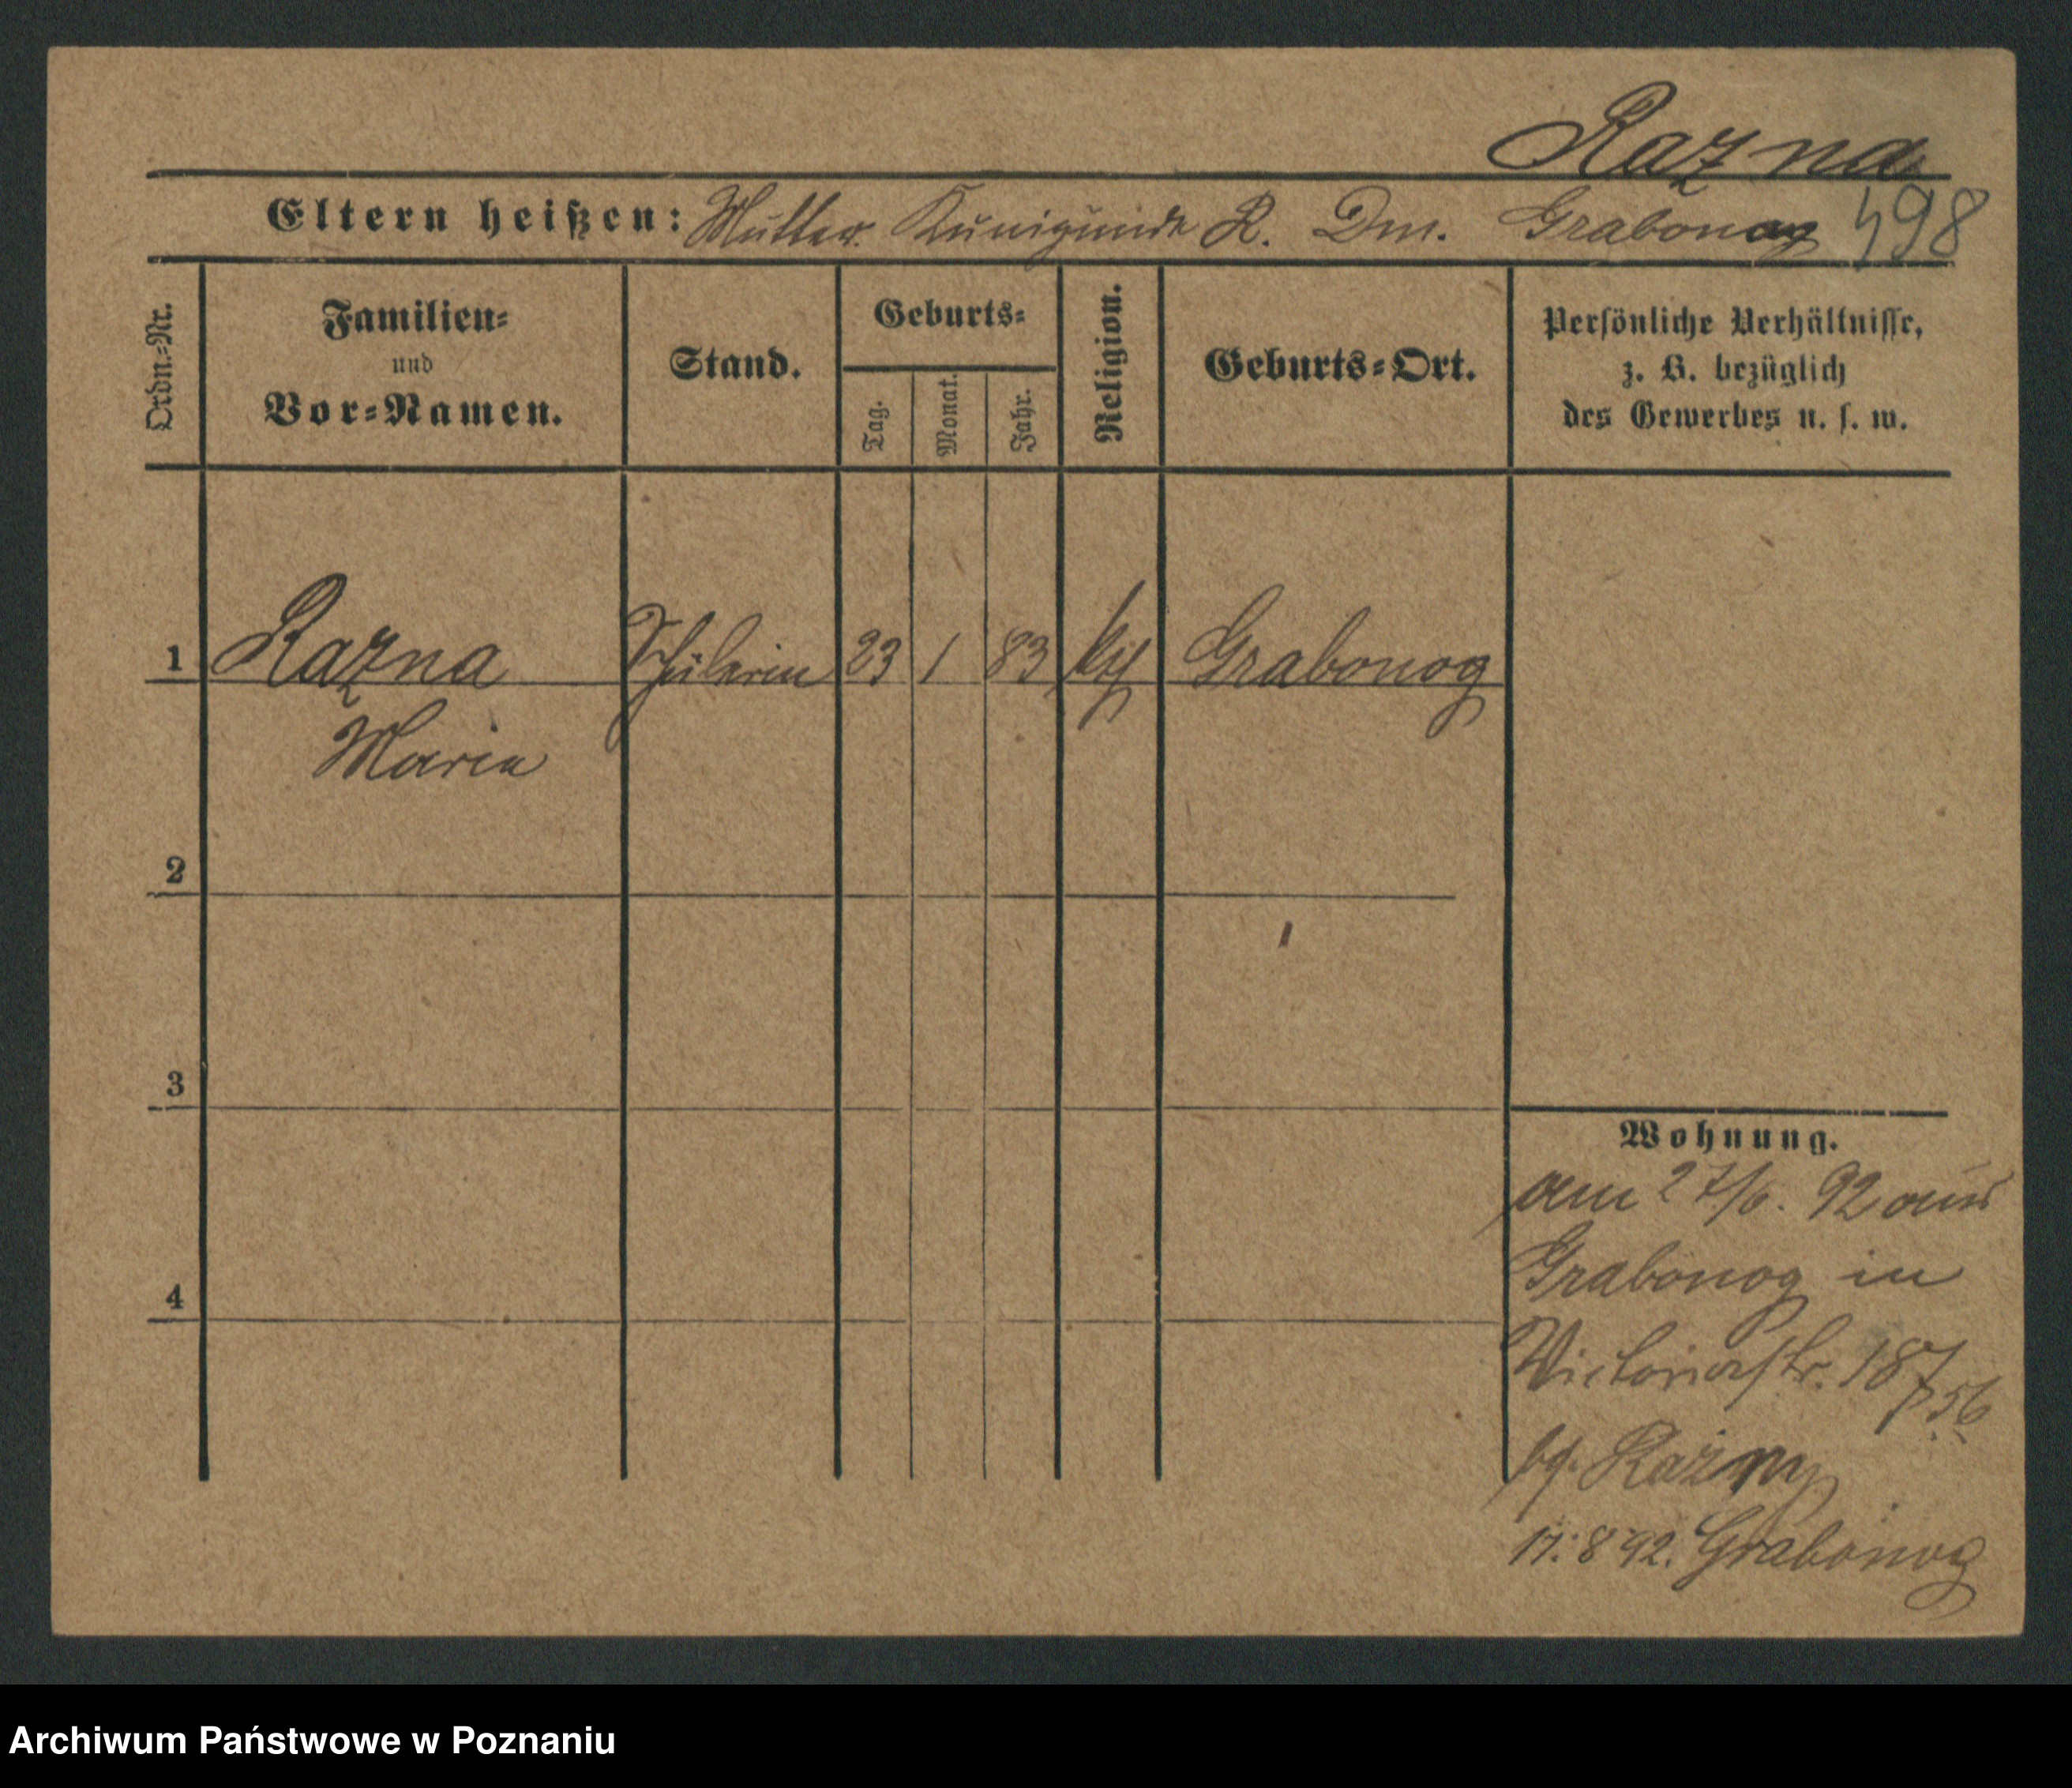 Razna
Eltern heißen: Mutter Kunigunde R. Dm. Grabonog 498
Ordn.-Nr.
Familien-
und
Vor-Namen.
Stand.
Geburts-
Tag.
Monat.
Jahr.
Religion.
Geburts-Ort.
Persönliche Verhältnisse,
z. B. bezüglich
des Gewerbes u. s. w.
1 Razna Schülerin 23 1 83 Grabonog
Maria
2
3
4
Wohnung.
am 27/6. 92 aus
Grabonog in
Victoriastr. 187
p 56
Razny
17. 8 92. Grabonog
Archiwum Państwowe w Poznaniu